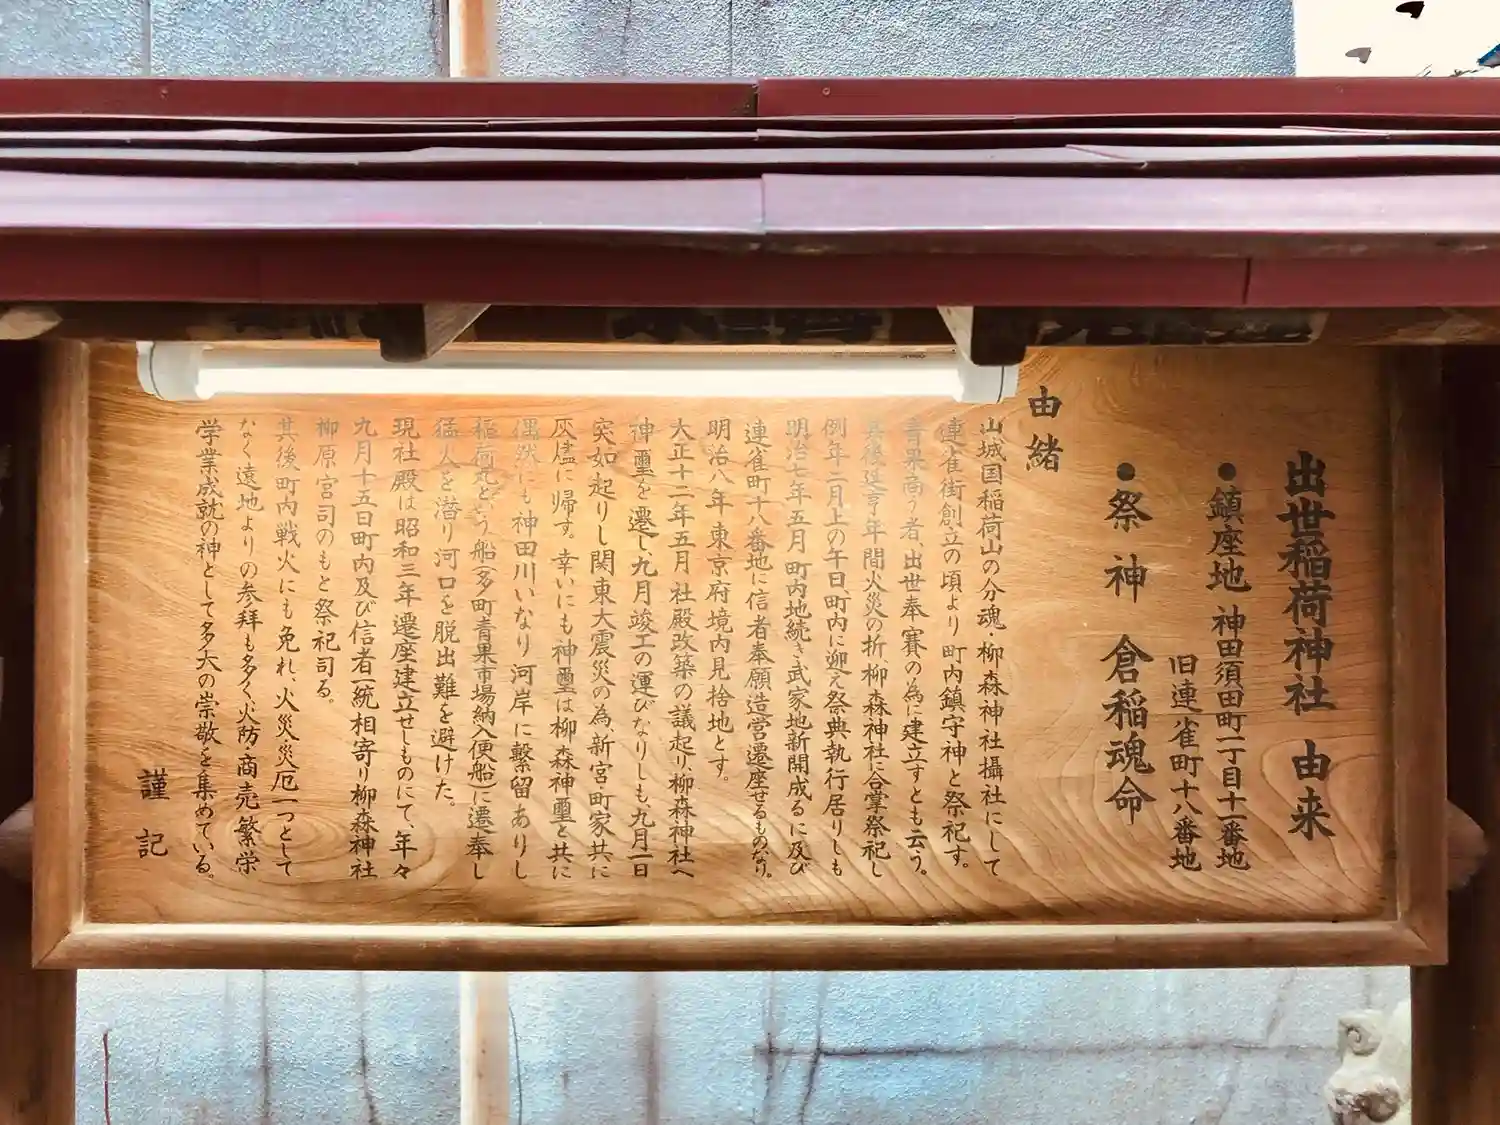 出世稲荷神社 由来
●鎮座地 神田須田町二丁目十一番地
旧連雀町十八番地
●祭神 倉稲魂命
由緒
山城国稲荷山の分魂・柳森神社攝社にして
連雀街創立の頃より町内鎮守神と祭祀す。
青果商う者、出世奉賽の為に建立すとも云う。
其後延亨年間火災の折、柳森神社に合掌祭祀し
例年二月上の午日、町内に迎え祭典執行居りしも
明治七年五月町内地続き武家地新開成るに及び
連雀町十八番地に信者奉願造営遷座せるものなり。
明治八年 東京府境内見捨地とす。
大正十二年五月 社殿改築の議起り、柳森神社へ
神璽を遷し、九月竣工の運びなりしも、九月一日
突如起りし関東大震災の為、新宮・町家共に
灰燼に帰す。幸いにも神璽は柳森神璽と共に
偶然にも神田川いなり河岸に繋留ありし
稲荷丸という船(多町青果市場納入便船)に遷奉し
猛火を潜り河口を脱出難を避けた。
現社殿は昭和三年遷座建立せしものにて、年々
九月十五日町内及び信者一統相寄り柳森神社
柳原宮司のもと祭祀司る。
其後町内戦火にも免れ、火災・災厄一つとして
なく遠地よりの参拝も多く火防・商売繁栄
学業成就の神として多大の崇敬を集めている。
謹記